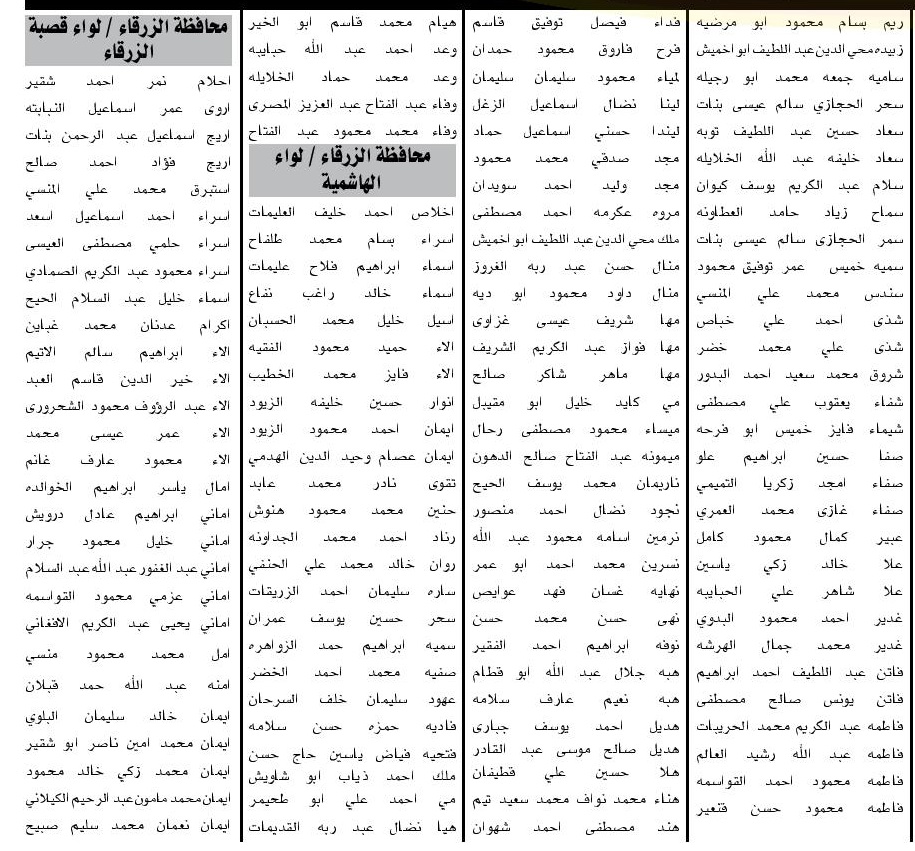 ريم بسام محمود ابو مرضيه
زبيده محي الدين عبد اللطيف ابو اخميش
ساميه جمعه محمد ابو رجيله
سحر الحجازي سالم عيسى بنات
سعاد حسين عبد اللطيف توبه
سعاد خليفه عبد الله الخلايله
سلام عبد الكريم يوسف كيوان
سماح زياد حامد العطاونه
سمر الحجازي سالم عيسى بنات
سميه خميس عمر توفيق محمود
سندس محمد علي المنسي
شذى احمد علي خباص
شذى علي محمد خضر
شروق محمد سعيد احمد البدور
شفاء يعقوب علي مصطفى
شيماء فايز خميس ابو فرحه
صفا حسين ابراهيم علو
صفاء امجد زكريا التميمي
صفاء غازي محمد العمري
عبير كمال محمود كامل
علا خالد زكي ياسين
علا شاهر علي الحبايبه
غدير احمد محمود البدوي
غدير محمد جمال الهرشه
فاتن عبد اللطيف احمد ابراهيم
فاتن يونس صالح مصطفى
فاطمه عبد الكريم محمد الحريبات
فاطمه عبد الله رشيد العالم
فاطمه محمود احمد القواسمه
فاطمه محمود حسن قتعير
فداء فيصل توفيق قاسم
فرح فاروق محمود حمدان
لمياء محمود سليمان سليمان
لينا نضال اسماعيل الزغل
ليندا حسني اسماعيل حماد
مجد صدقي محمد محمود
مجد وليد احمد سويدان
مروه عكرمه احمد مصطفى
ملك محي الدين عبد اللطيف ابو اخميش
منال حسن عبد ربه الغروز
منال داود محمود ابو ديه
مها شريف عيسى غزاوي
مها فواز عبد الكريم الشريف
مها ماهر شاكر صالح
مي كايد خليل ابو مقيبل
ميساء محمود مصطفى رحال
ميمونه عبد الفتاح صالح الدهون
ناريمان محمد يوسف الحيح
نجود نضال احمد منصور
نرمين اسامه محمود عبد الله
نسرين محمد احمد ابو عمر
نهايه غسان فهد عوايص
نهى حسن محمد حسن
نوفه ابراهيم احمد الفقير
هبه جلال عبد الله ابو قطام
هبه نعيم عارف سلامه
هديل احمد يوسف جباري
هديل صالح موسى عبد القادر
هلا حسين علي قطيفان
هناء محمد نواف محمد سعيد تيم
هند مصطفى احمد شهوان
هيام محمد قاسم ابو الخير
وعد احمد عبد الله حبايبه
وعد محمد حماد الخلايله
وفاء عبد الفتاح عبد العزيز المصري
وفاء محمد محمود عبد الفتاح
محافظة الزرقاء / لواء
الهاشمية
اخلاص احمد خليف العليمات
اسراء بسام محمد طلفاح
اسماء ابراهيم فلاح عليمات
اسماء خالد راغب نفاع
اسيل خليل محمد الحسبان
الاء حميد محمود الفقيه
الاء فايز محمد الخطيب
انوار حسين خليفه الزيود
ايمان احمد محمود الزيود
ايمان عصام وحيد الدين الهدمي
تقوى نادر محمد عابد
حنين محمد محمود هنوش
رناد احمد محمد الجداونه
روان خالد محمد علي الحنفي
ساره سليمان احمد الزريقات
سحر حسين يوسف عمران
سميه ابراهيم حمد الزواهره
صفيه محمد احمد الخضر
عهود سليمان خلف السرحان
فاديه حمزه حسن سلامه
فتحيه فياض ياسين حاج حسن
ملك احمد ذياب ابو شاويش
مي احمد علي ابو طحيمر
هيا نضال عبد ربه القديمات
محافظة الزرقاء / لواء قصبة
الزرقاء
احلام نمر احمد شقير
اروى عمر اسماعيل النبابته
اريج اسماعيل عبد الرحمن بنات
اريج فؤاد احمد صالح
استبرق محمد علي المنسي
اسراء احمد اسماعيل اسعد
اسراء حلمي مصطفى العيسى
اسراء محمود عبد الكريم الصمادي
اسماء خليل عبد السلام الحيح
اكرام عدنان محمد غباين
الاء ابراهيم سالم الاتيم
الاء خير الدين قاسم العبد
الاء عبد الرؤوف محمود الشحروري
الاء عمر عيسى محمد
الاء محمود عارف غانم
امال ياسر ابراهيم الخوالده
اماني ابراهيم عادل درويش
اماني خليل محمود جرار
اماني عبد الغفور عبد الله عبد السلام
اماني عزمي محمود القواسمه
اماني يحيى عبد الكريم الافغاني
امل محمد محمود منسي
امنه عبد الله حمد قبلان
ايمان خالد سليمان البلوي
ايمان محمد امين ناصر ابو شقير
ايمان محمد زكي خالد محمود
ايمان محمد مامون عبد الرحيم الكيلاني
ايمان نعمان محمد سليم صبيح